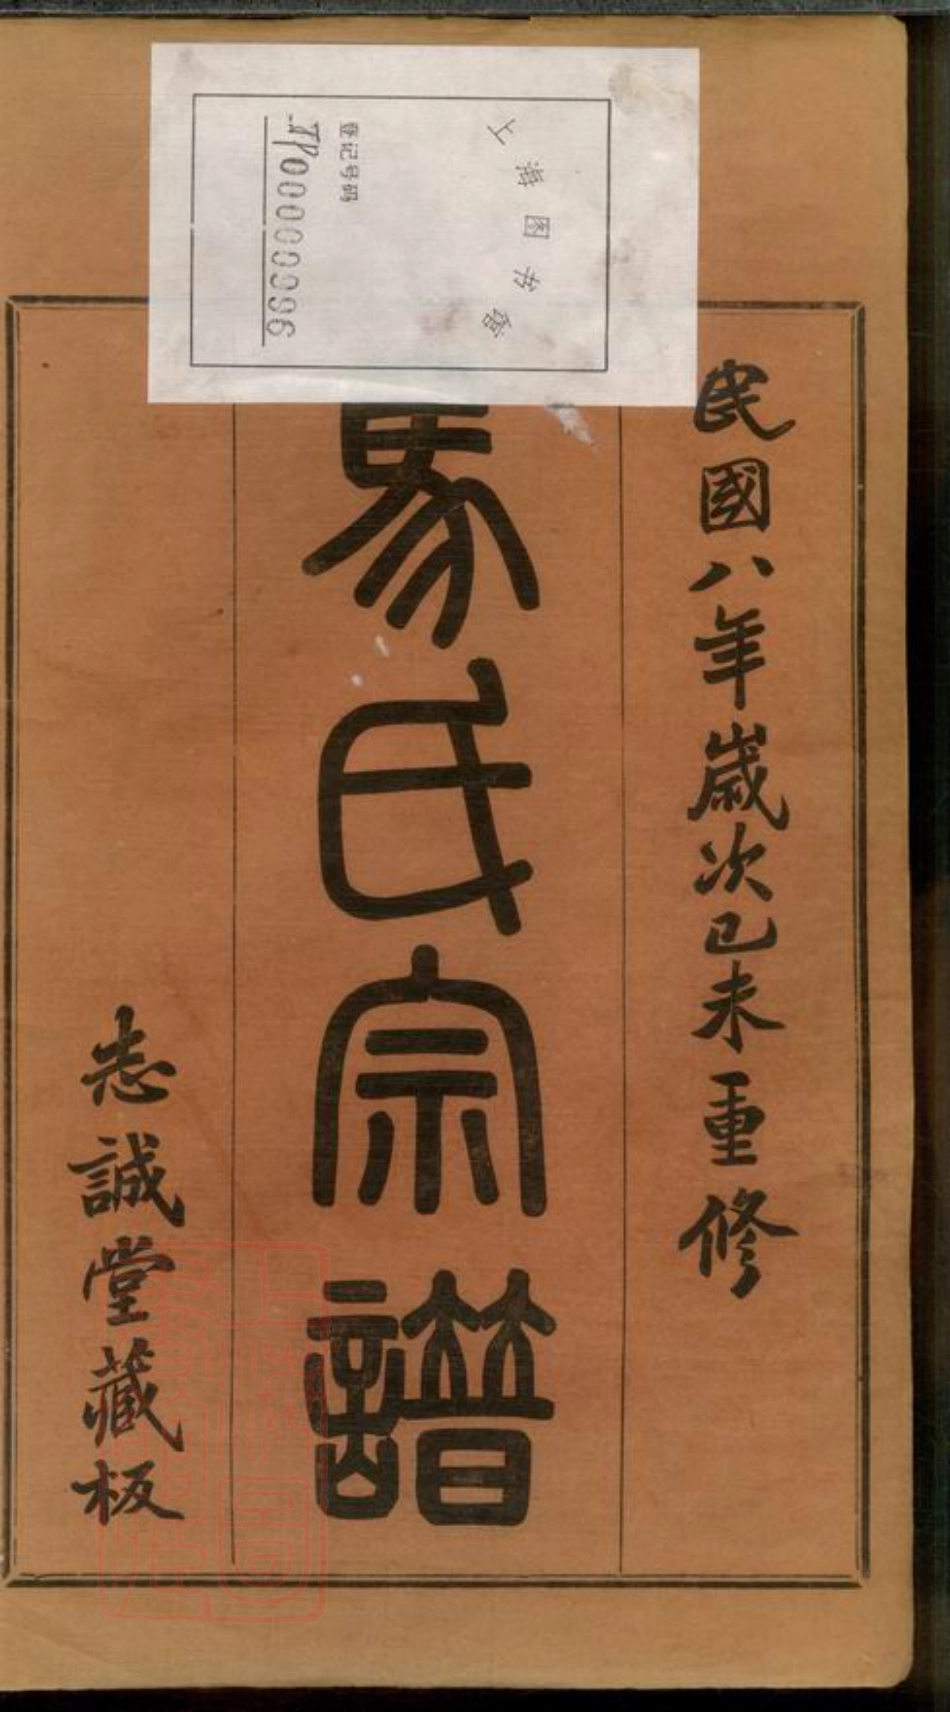 上海图书馆
登记号码
民國八年歲次己未重修
氏宗譜
志誠堂藏板